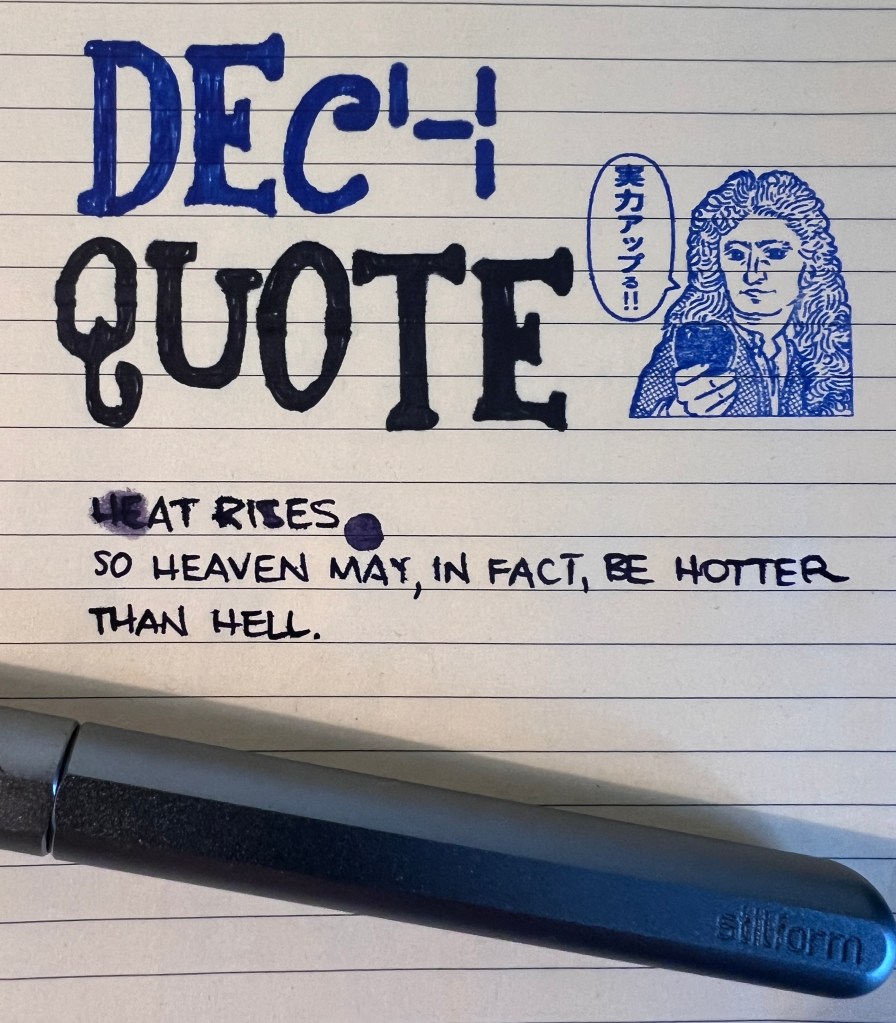 DEC 4
QUOTE
実力アップる!!
HEAT RISES.
SO HEAVEN MAY, IN FACT, BE HOTTER
THAN HELL.
stilform